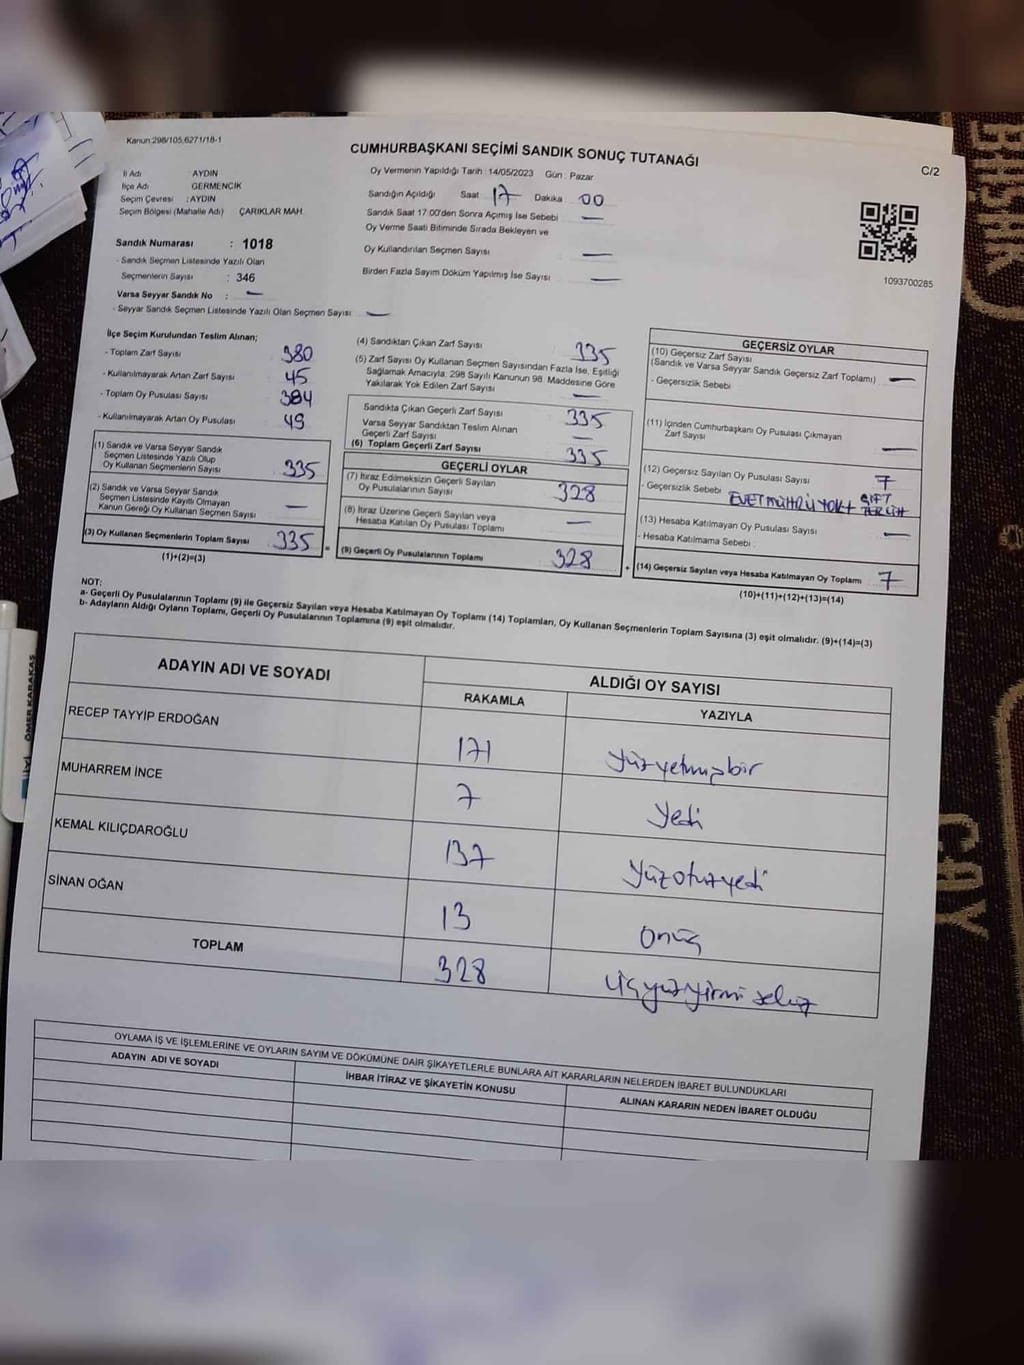 Kanun:298/105,6271/18-1
CUMHURBAŞKANI SEÇİMİ SANDIK SONUÇ TUTANAĞI
C/2
İl Adı AYDIN
İlçe Adı GERMENCİK
Seçim Çevresi : AYDIN
Seçim Bölgesi (Mahalle Adı) ÇARIKLAR MAH.
Sandık Numarası : 1018
- Sandık Seçmen Listesinde Yazılı Olan
Seçmenlerin Sayısı : 346
Varsa Seyyar Sandık No : —
- Seyyar Sandık Seçmen Listesinde Yazılı Olan Seçmen Sayısı : —
Oy Vermenin Yapıldığı Tarih :14/05/2023 Gün : Pazar
Sandığın Açıldığı Saat 17 Dakika 00
Sandık Saat 17:00'den Sonra Açımış İse Sebebi —
Oy Verme Saati Bitiminde Sırada Bekleyen ve
Oy Kullandırılan Seçmen Sayısı —
Birden Fazla Sayım Döküm Yapılmış İse Sayısı —
1093700285
İlçe Seçim Kurulundan Teslim Alınan;
- Toplam Zarf Sayısı 380
- Kullanılmayarak Artan Zarf Sayısı 45
- Toplam Oy Pusulası Sayısı 384
- Kullanılmayarak Artan Oy Pusulası 49
(1) Sandık ve Varsa Seyyar Sandık
Seçmen Listesinde Yazılı Olup
Oy Kullanan Seçmenlerin Sayısı 335
(2) Sandık ve Varsa Seyyar Sandık
Seçmen Listesinde Kayıtlı Olmayan
Kanun Gereği Oy Kullanan Seçmen Sayısı —
(3) Oy Kullanan Seçmenlerin Toplam Sayısı 335
(1)+(2)=(3)
(4) Sandıktan Çıkan Zarf Sayısı 335
(5) Zarf Sayısı Oy Kullanan Seçmen Sayısından Fazla İse, Eşitliği
Sağlamak Amacıyla; 298 Sayılı Kanunun 98. Maddesine Göre
Yakılarak Yok Edilen Zarf Sayısı —
Sandıkta Çıkan Geçerli Zarf Sayısı 335
Varsa Seyyar Sandıktan Teslim Alınan
Geçerli Zarf Sayısı —
(6) Toplam Geçerli Zarf Sayısı 335
GEÇERLİ OYLAR
(7) İtiraz Edilmeksizin Geçerli Sayılan
Oy Pusulalarının Sayısı 328
(8) İtiraz Üzerine Geçerli Sayılan veya
Hesaba Katılan Oy Pusulası Toplamı —
(9) Geçerli Oy Pusulalarının Toplamı 328
GEÇERSİZ OYLAR
(10) Geçersiz Zarf Sayısı
(Sandık ve Varsa Seyyar Sandık Geçersiz Zarf Toplamı) —
- Geçersizlik Sebebi
(11) İçinden Cumhurbaşkanı Oy Pusulası Çıkmayan
Zarf Sayısı —
(12) Geçersiz Sayılan Oy Pusulası Sayısı 7
- Geçersizlik Sebebi EVET MÜHRÜ YOK + ÇİFT TERCİH
(13) Hesaba Katılmayan Oy Pusulası Sayısı —
- Hesaba Katılmama Sebebi
(14) Geçersiz Sayılan veya Hesaba Katılmayan Oy Toplamı 7
(10)+(11)+(12)+(13)=(14)
NOT:
a- Geçerli Oy Pusulalarının Toplamı (9) ile Geçersiz Sayılan veya Hesaba Katılmayan Oy Toplamı (14) Toplamları, Oy Kullanan Seçmenlerin Toplam Sayısına (3) eşit olmalıdır. (9)+(14)=(3)
b- Adayların Aldığı Oyların Toplamı, Geçerli Oy Pusulalarının Toplamına (9) eşit olmalıdır.
ADAYIN ADI VE SOYADI ALDIĞI OY SAYISI
RAKAMLA YAZIYLA
RECEP TAYYİP ERDOĞAN 171 yüzyetmişbir
MUHARREM İNCE 7 yedi
KEMAL KILIÇDAROĞLU 137 yüzotuzyedi
SİNAN OĞAN 13 onüç
TOPLAM 328 üçyüzyirmi sekiz
OYLAMA İŞ VE İŞLEMLERİNE VE OYLARIN SAYIM VE DÖKÜMÜNE DAİR ŞİKAYETLERLE BUNLARA AİT KARARLARIN NELERDEN İBARET BULUNDUKLARI
ADAYIN ADI VE SOYADI İHBAR İTİRAZ VE ŞİKAYETİN KONUSU ALINAN KARARIN NEDEN İBARET OLDUĞU
ÖMER KARAKAŞ
BAŞAK
ÇAY